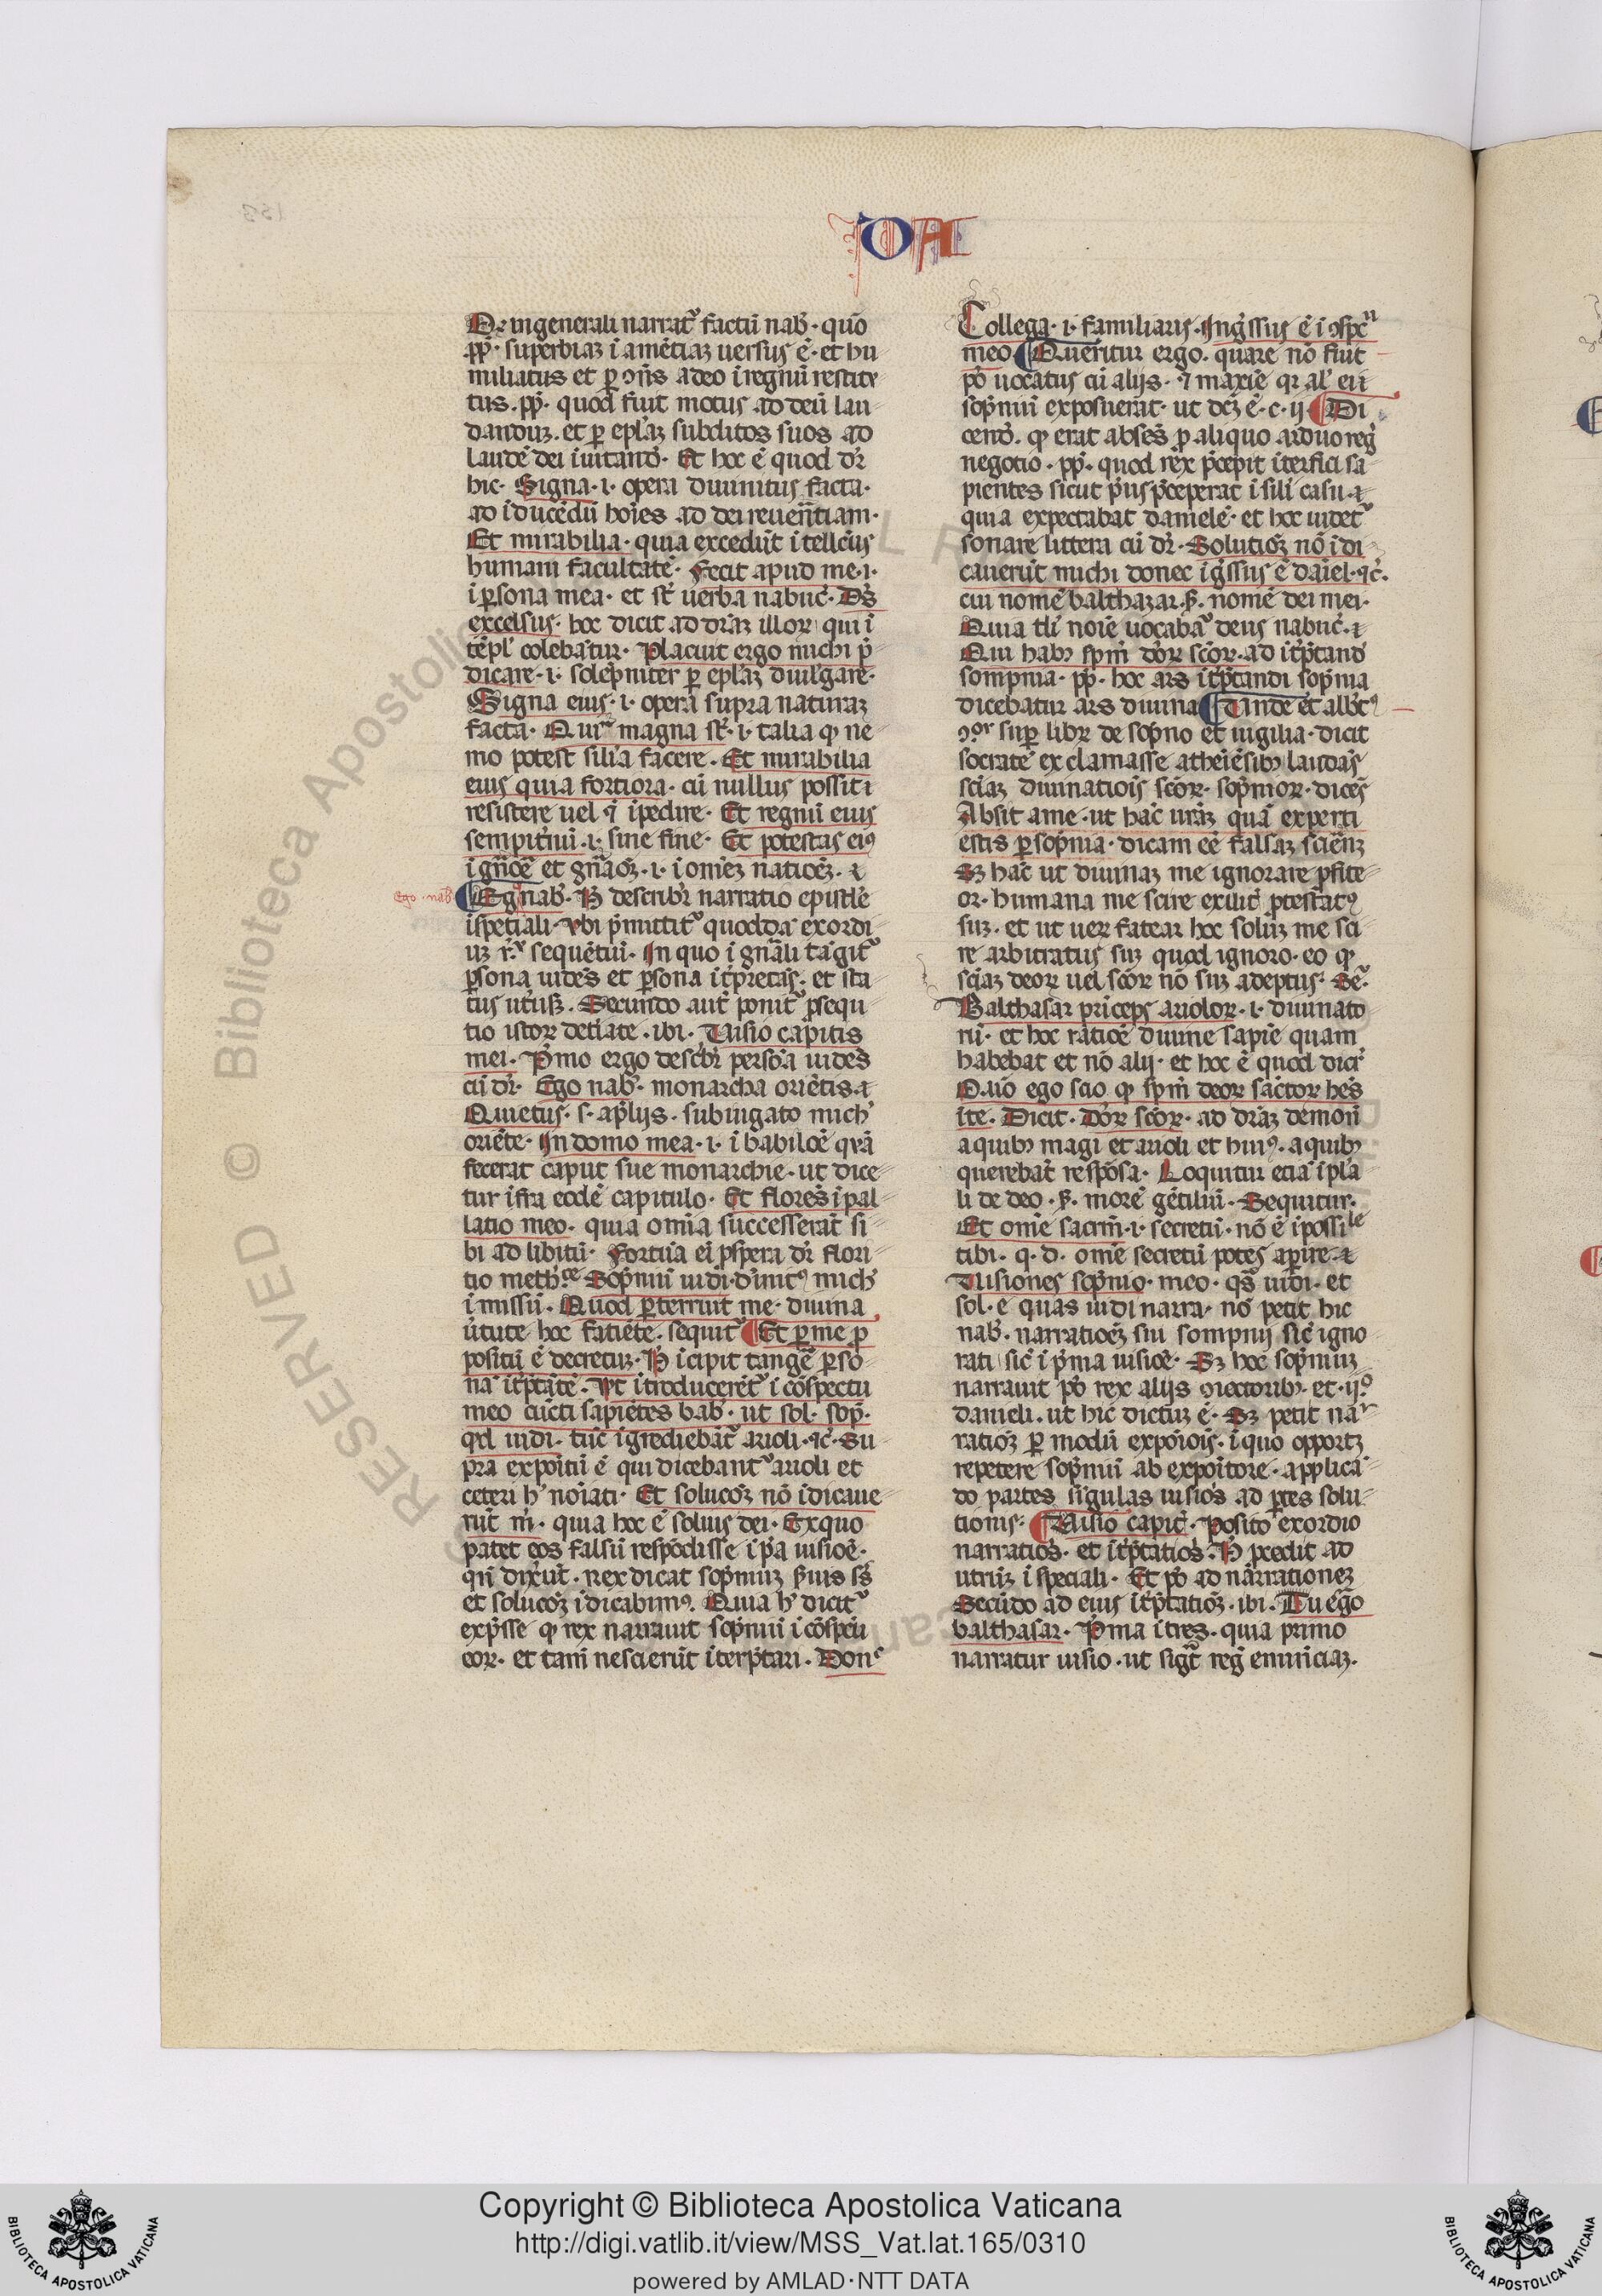 DA
De in generali narrat᷒ factū nab̾ · quō
pp̄ · superbiaꝫ ī amētiaꝫ uersus ē · et hu
miliatus et ꝑ ↄ̄ñs a deo ī regnū restitu
tus . pp̄ · quod fuit motus ad deū lau
danduꝫ . et ꝑ ep̄laꝫ subditos suos ad
laudē dei īuitand̾ · Et hoc ē quod dr̄
hic · Signa · i · opera diuinitus facta ·
ad īducēdū hoīes ad dei reuerētiam ·
Et mirabilia · quia excedūt ītellc̄us
humani facultatē · Fecit apud me · i ·
ī ꝑsona mea · et sūt uerba nabuc̄ · Ds̄
excelsus · hoc dicit ad dr̄aꝫ illoꝝ qui ī
tēpl' colebātur · Placuit ergo michi p̄
dicare · i · solēpniter ꝑ ep̄laꝫ diuulgare ·
Signa eius · i · opera supra naturaꝫ
facta · magna sūt · i · talia qꝫ ne
mo potest sil̄ia facere . Et mirabilia
eius quia fortiora · cū nullus possit
resistere uel ī īpedire · Et regnū eius
sempit̄nū · i · sine fine · Et potestas ei᷒
ī gn̄ōē et gn̄aōꝫ · i · ī omēꝫ natiōēꝫ ·
Ego · nab̾
Ego nab̾ · H̄ describ̄r narratio epistle
ī speciali · Vbi p̄mittit᷒ quoddā exordi
uꝫ sequētiū · In quo ī gn̄ali tāgit᷒
ꝑsona uidēs et ꝑsona īt̄p̄retās · et sta
tus ut̄iusqꝫ . Secundo aut̄ ponit᷒ ꝓsequ
tio istoꝝ . ibi . Uisio capitis
mei · P̄mo ergo descb̄r persōa uidēs
cū dr̄ · Ego nab̾ · monarcha oriētis ·
Quietus · s · a p̄lijs · subiugato mich'
oriēte · In domo mea · i · ī babilōē quā
fecerat caput sue monarchie · ut dice
tur īfra eodē capitulo · Et florēs ī pal
latio meo · quia omīa successerāt si
bi ad libitū · Fortūa eī ꝓspera dr̄ flori
tio Sop̄niū uidi · diuinit᷒ mich'
īmissū . Quod ꝑterruit me · diuina
ūtute hoc faciēte . sequit᷒ Et ꝑ me ꝓ
positū ē decretuꝫ · H̄ īcipit tangē ꝑso
na īt̄p̄tātē . Vt ītroducerēt᷒ ī cōspectu
meo cūcti sapiētes bab̾ · ut sol · sop̄ ·
qd̄ uidi · tūc īgrediebāt᷒ arioli · ⁊c̄ · Su
pra expoītū ē qui dicebant᷒ arioli et
ceteri h̾ noīati · Et solucōꝫ nō īdicaue
rūt m̄ · quia hoc ē solius dei · Ex quo
patet eos falsū respōdisse ī p̄a uisiōē ·
qn̄ dixūt · Rex dicat sop̄niuꝫ ẜuis sīs
et solucōꝫ īdicabim᷒ · Quia h' dicit᷒
exp̄sse qꝫ rex narrauit sop̄niū ī cōspc̄u
eoꝝ · et tamī nescierūt īterp̄tari . Donc̄
Collega · i · familiaris · Ing̾ssus ē ī ↄspc̄u
meo Queritur ergo · quare nō fuit
p̄o uocatus cū alijs · ⁊ maxīē qꝛ al' eiꝰ
sop̄niū exposuerat · ut dc̄ꝫ ē · c · ij · Di
cend̾ . qꝫ erat absēs ꝓ aliquo arduo reḡ
negotio · pp̄ · quod rex p̄cepit īterfici sa
pientes sicut p̄us p̄ceperat ī sil̄i casu ·
quia expectabat danielē · et hoc uidet᷒
sonare littera cū dr̄ · Solutiōꝫ nō īdi
cauerūt michi donec īg̾ssus ē daīel · ⁊c̄ ·
cui nomē balthazar · ẜ · nomē dei mei ·
Quia tl̄i noīe uocabat᷒ deus nabuc̄ ·
Qui habꝫ spm̄ dōꝝ scōꝝ · ad īt̄p̄tand̾
sompnia · pp̄ · hoc ars īt̄p̄tandi sop̄nia
dicebatur ars diuina Unde et alb̾t᷒
ↄ̄oꝝ suꝑ libꝝ de sop̄no et uigilia · dicit
socratē exclamasse atheīēsibꝫ laudās
scīaꝫ diuinatioīs scōꝝ · sop̄nioꝝ · dicēs
Absit a me · ut hāc ur̄aꝫ quā experti
estis ꝑ sop̄nia · dicam ēē falsaꝫ sciēnꝫ
Sꝫ hāc ut diuinaꝫ me ignorare ꝓfite
or · humana me scire
suꝫ · et ut ueꝝ fatear hoc soluꝫ me sci
re arbitratus suꝫ quod ignoro · eo qꝫ
scīaꝫ deoꝝ uel scōꝝ nō suꝫ adeptus · Se᷒
Balthasar prīceps arioloꝝ · i · diuinato
rū · et hoc ratiōē diuine sapīe quam
habebat et nō alij · et hoc ē quod dicit
Quō ego scio qꝫ spm̄ deoꝝ sāctoꝝ hēs
ī te · Dicit · Dōꝝ scōꝝ · ad dr̄aꝫ demonū
a quibꝫ magi et arioli et hui᷒ · a quibꝫ
querebāt respōsa · Loquitur eciā ī pl̄a
li de deo · ẜ · morē gētiliū · Sequitur ·
Et omē sacrm̄ · i · secretū · nō ē īpossile
tibi · q · d · omē secretū potes aꝑire ·
Uisiones sop̄nio · meo · qās uidi · et
sol · e quas uidi narra · nō petit hic
nab̾ · narratiōēꝫ sui sompnij sic̄ igno
rati sic̄ ī p̄ma uisiōē · Sꝫ hoc sop̄niuꝫ
narrauit p̄o rex alijs ↄiectoribꝫ · et · ij᷒
danieli · ut hic dictuꝫ ē · Sꝫ petit nar
ratiōꝫ ꝑ modū expōiōis · ī quo oportꝫ
repetere sop̄niū ab expoītore · applicā
do partes sīgulas uisiōs ad p̄tes solu
tionis · Uisio capit̄ · Posito exordio
narratiōs · et īt̄p̄tatiōs · H̄ ꝓcedit ad
utrūqꝫ ī speciali · Et p̄o ad narrationeꝫ
Secūdo ad eius īt̄p̄tatiōꝫ · ibi · Tu ergo
balthasar · P̄ma ī tres · quia primo
narratur uisio · ut sigt̄ reḡ eminēciaꝫ ·
Copyright © Biblioteca Apostolica Vaticana
http://digi.vatlib.it/view/MSS_Vat.lat.165/0310
powered by AMLAD·NTT DATA
BIBLIOTECA APOSTOLICA VATICANA
BIBLIOTECA APOSTOLICA VATICANA